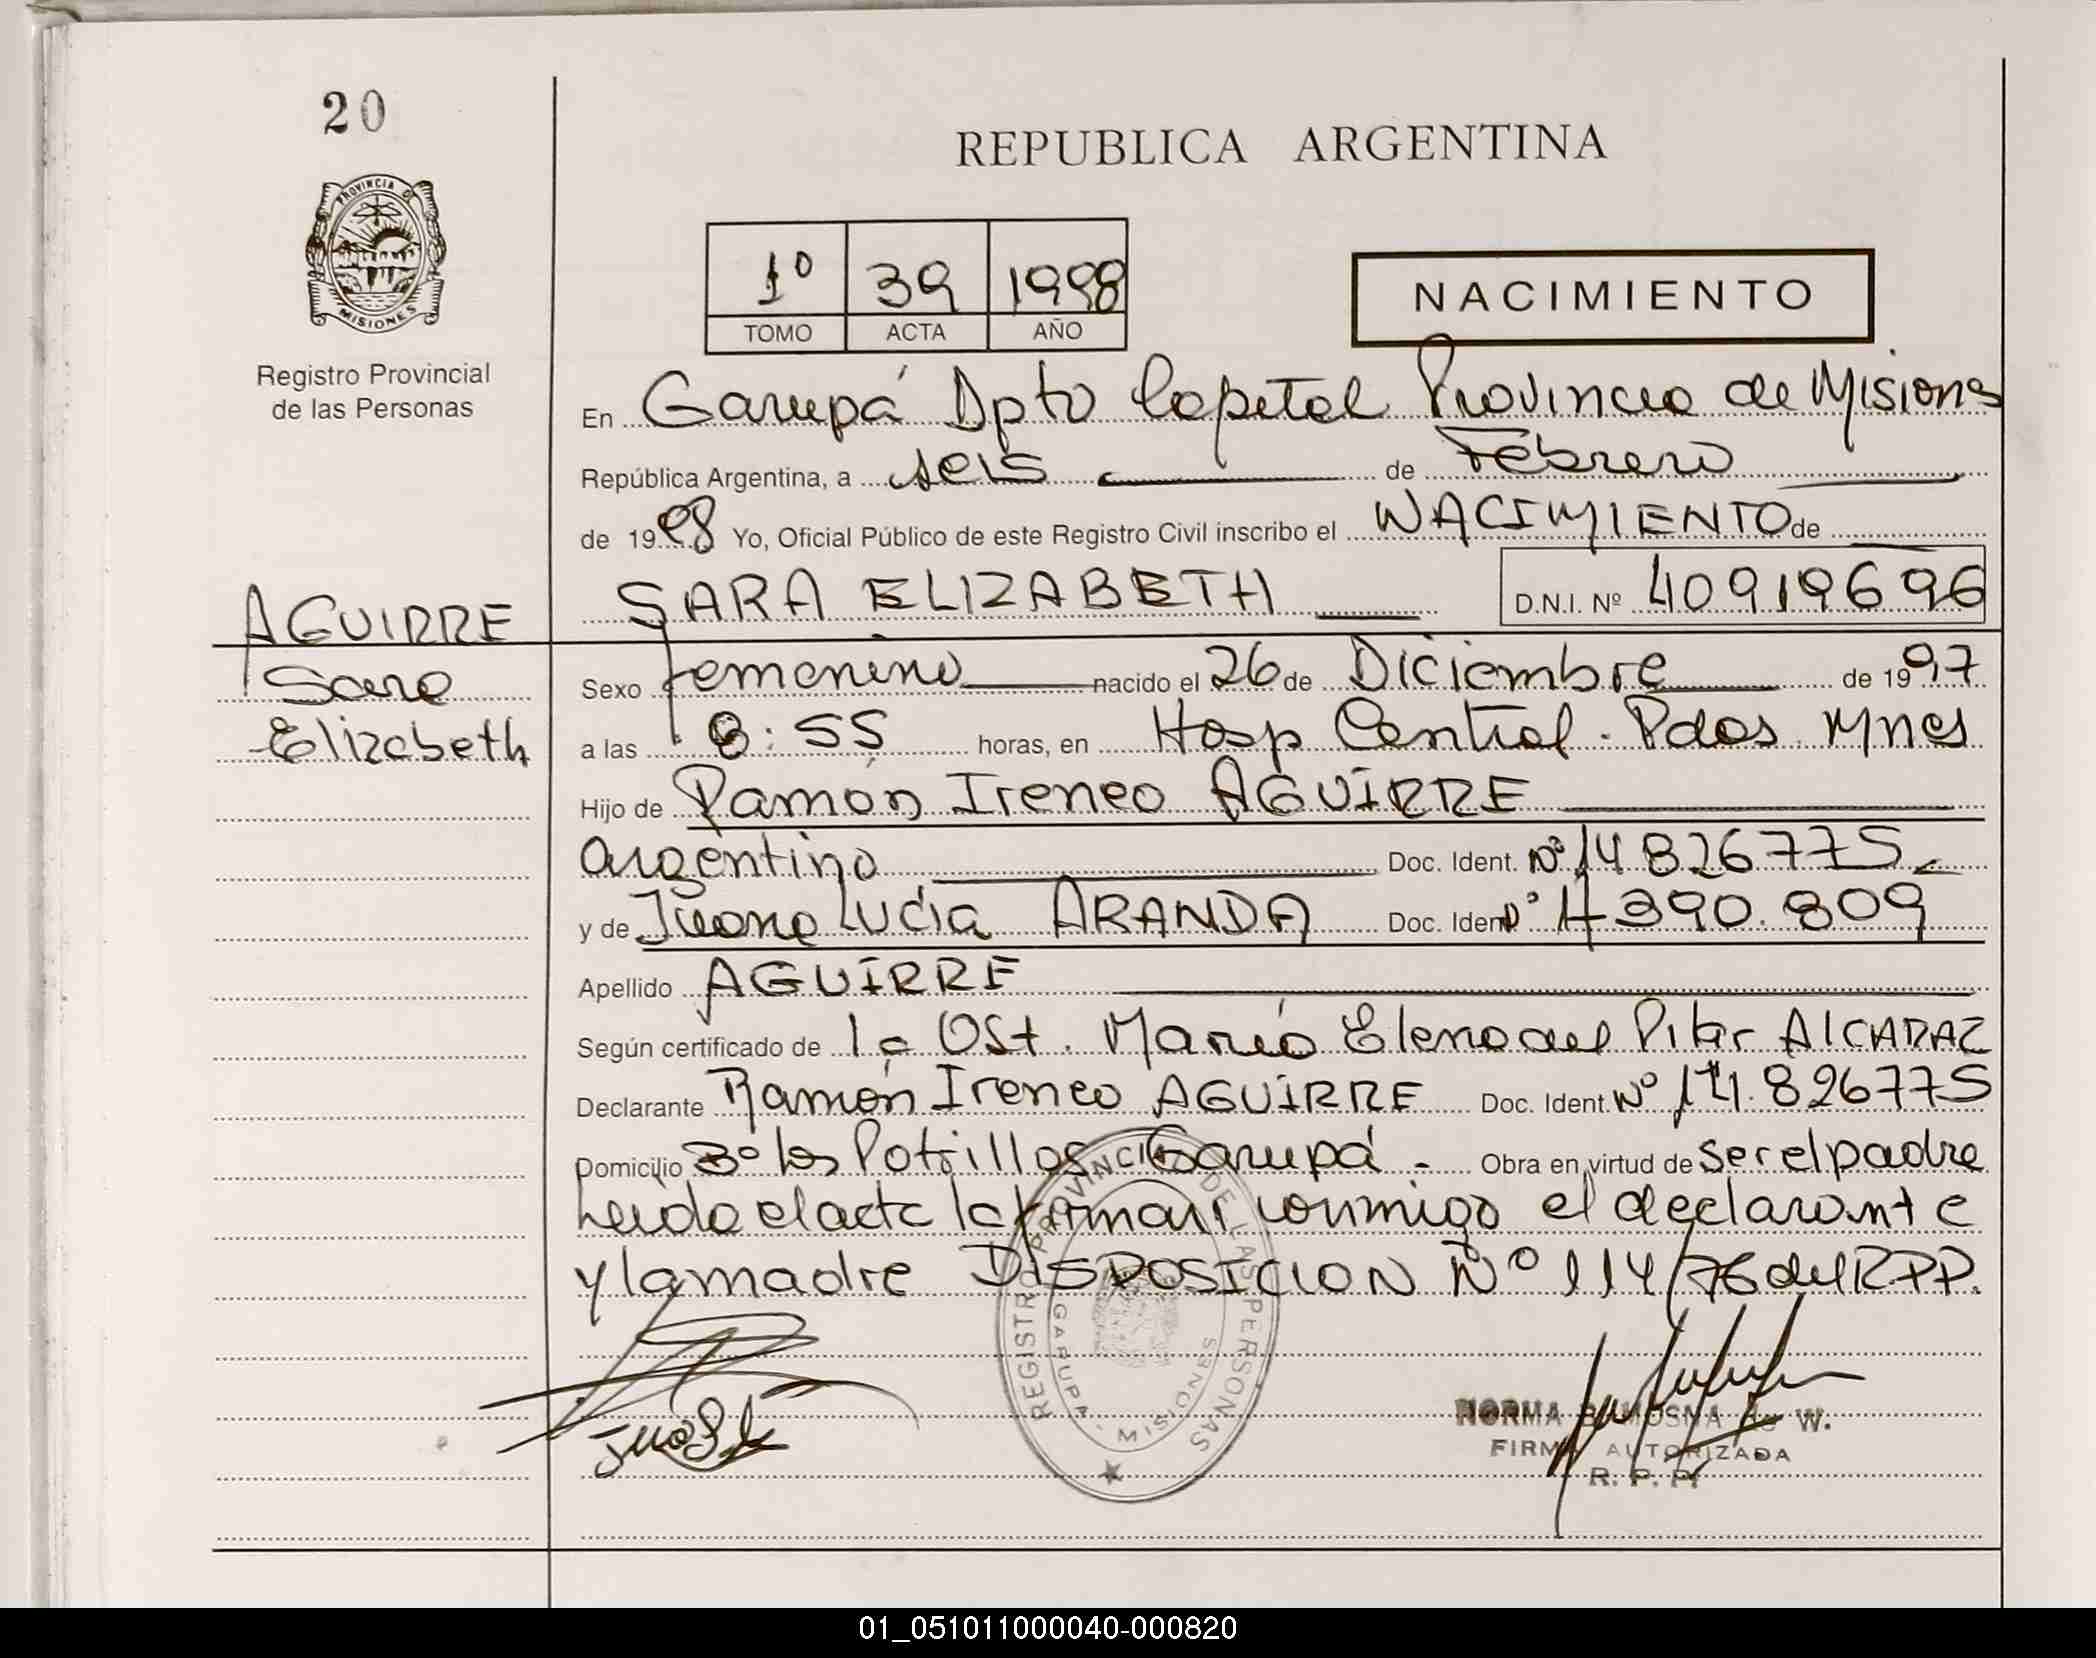 20
REPUBLICA ARGENTINA
PROVINCIA DE
MISIONES
Registro Provincial
de las Personas
1º 39 1998
TOMO ACTA AÑO
NACIMIENTO
En Garupá Dpto Capital Provincia de Misiones
República Argentina, a seis de Febrero
de 1998 Yo, Oficial Público de este Registro Civil inscribo el NACIMIENTO de
SARA ELIZABETH D.N.I. Nº 40919696
AGUIRRE
Sara
Elizabeth
Sexo femenino nacido el 26 de Diciembre de 1997
a las 8:55 horas, en Hosp Central. Pdas Mnes
Hijo de Ramón Ireneo AGUIRRE
argentino Doc. Ident. Nº 14826775
y de Juana Lucía ARANDA Doc. Ident Nº 390.809
Apellido AGUIRRE
Según certificado de la Ost. María Elena del Pilar ALCARAZ
Declarante Ramón Ireneo AGUIRRE Doc. Ident. Nº 14.826775
Domicilio Bº los Potrillos Garupá. Obra en virtud de ser el padre
Leida el acta la firman conmigo el declarante
y la madre DISPOSICION Nº 114/76 del RPP.
REGISTRO PROVINCIAL DE LAS PERSONAS
GARUPA - MISIONES
NORMA de W.
FIRMA AUTORIZADA
R. P. P.
01_051011000040-000820